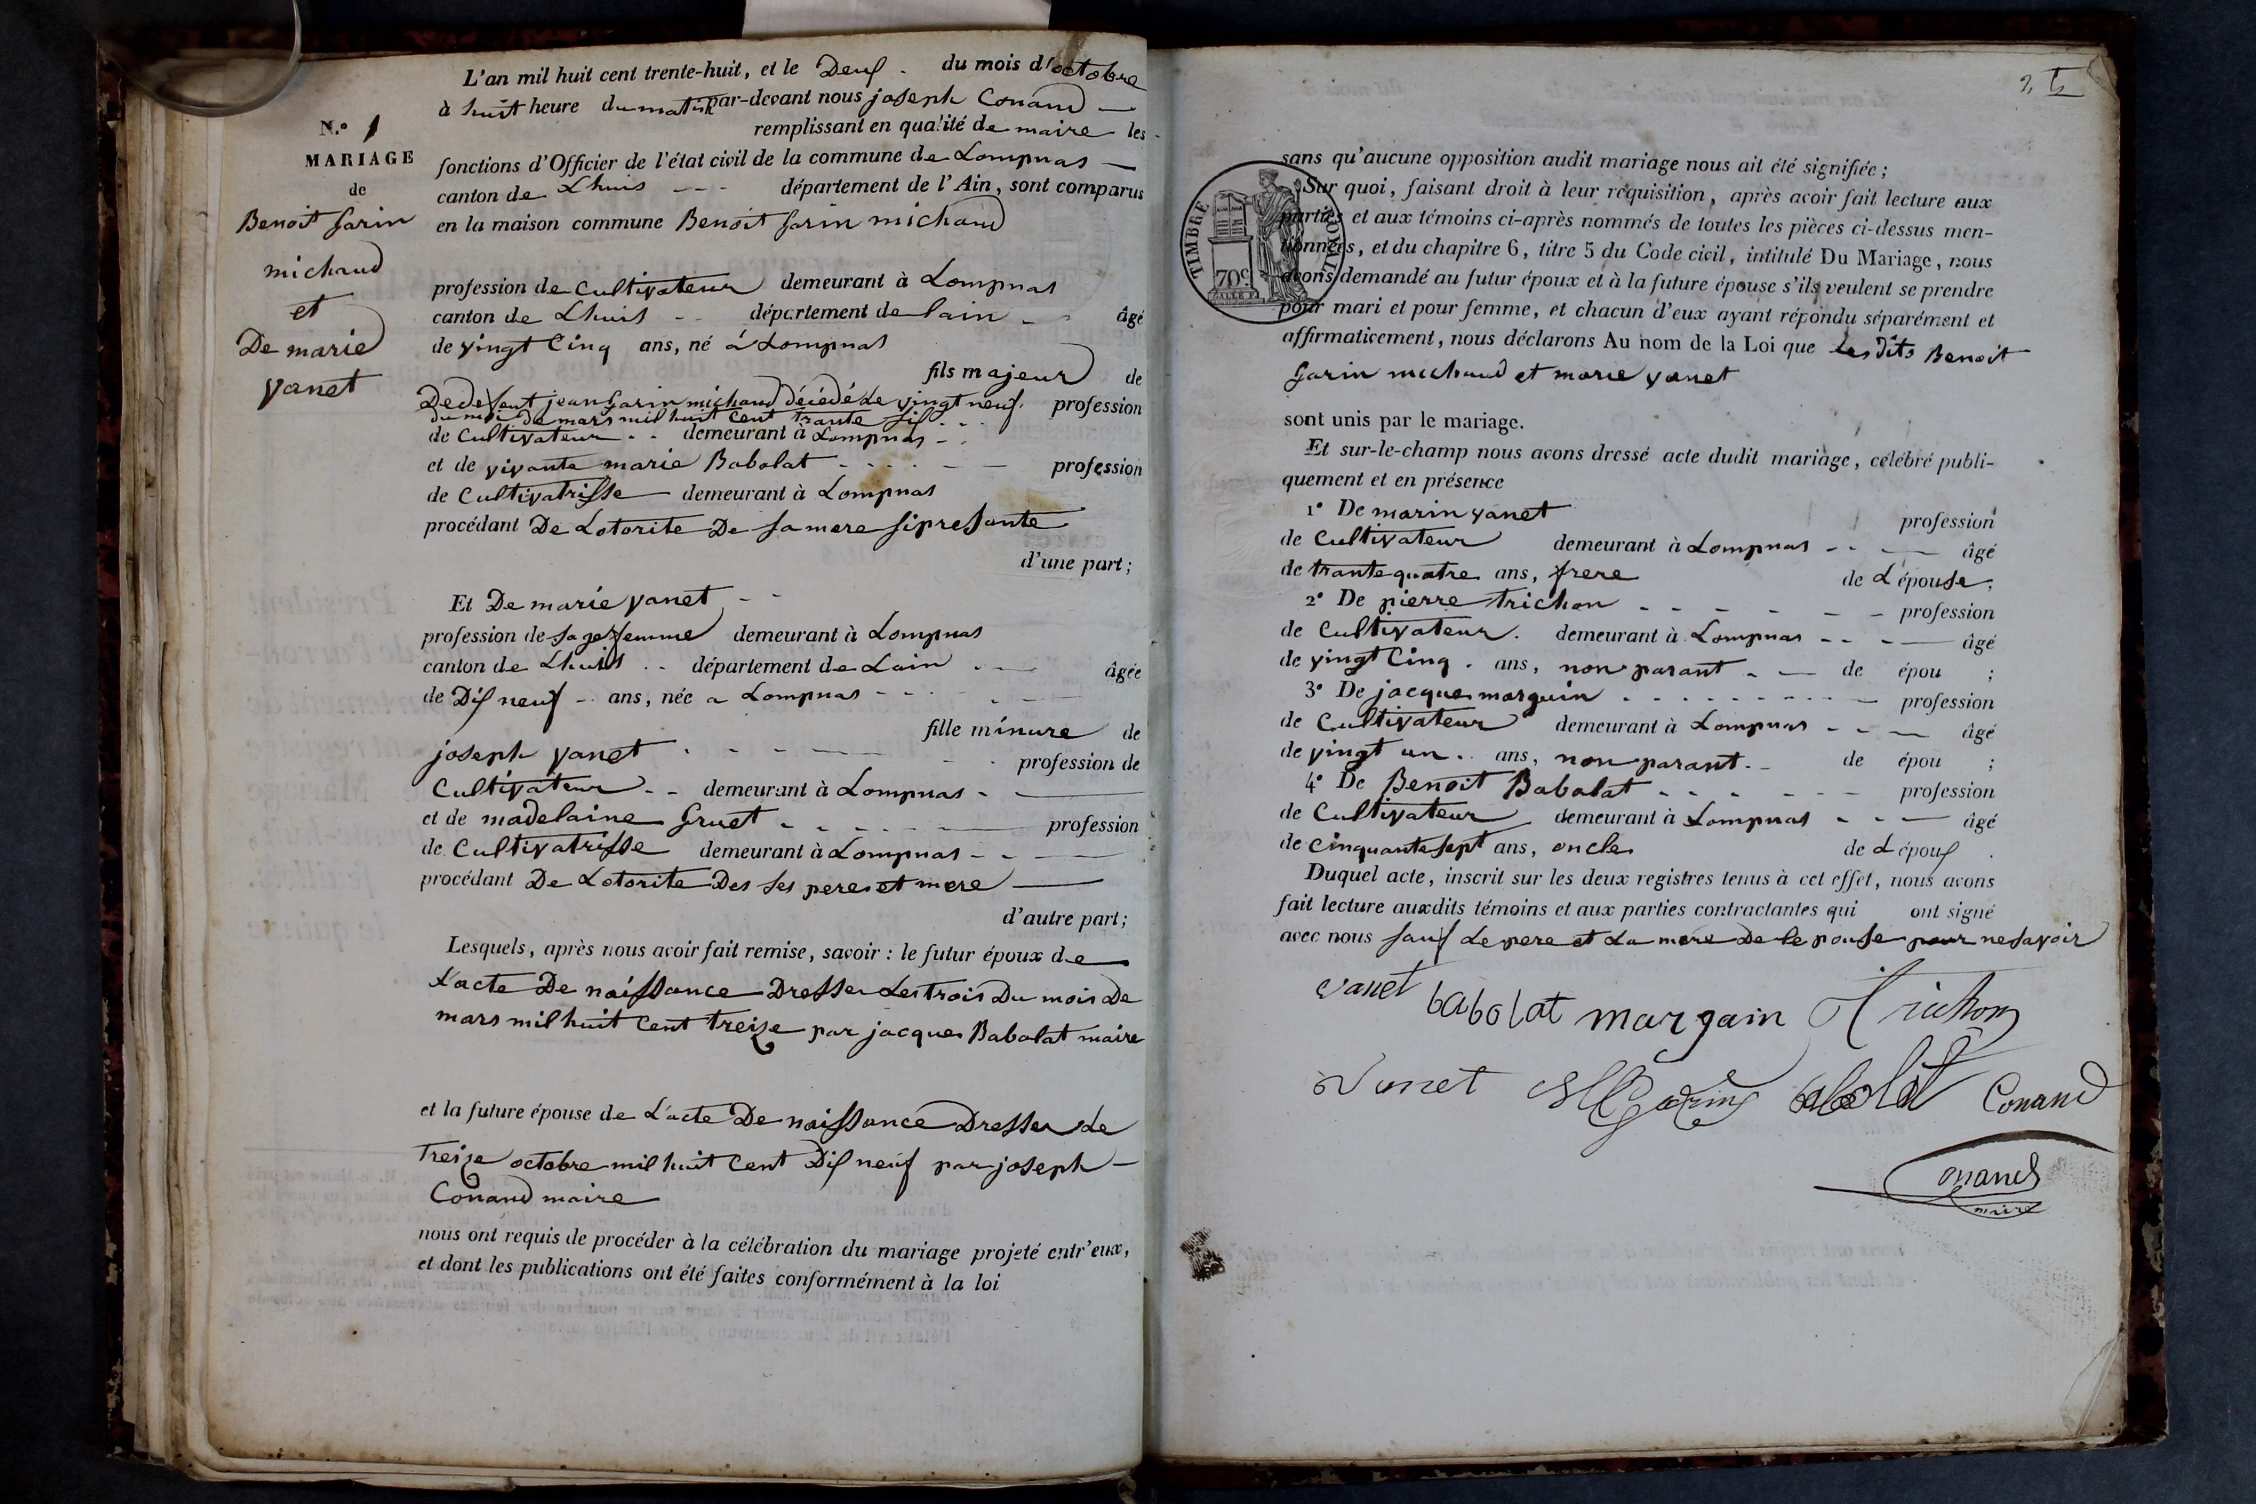 N.° 1
MARIAGE
de
Benoit garin
michaud
et
De marie
vanet
L'an mil huit cent trente-huit, et le Deux du mois d'octobre
à huit heure du matin par-devant nous joseph Conand
remplissant en qualité de maire les
fonctions d'Officier de l'état civil de la commune de Lompnas
canton de Lhuis département de l'Ain, sont comparus
en la maison commune Benoit garin michaud
profession de Cultivateur demeurant à Lompnas
canton de Lhuis département de lain âgé
de vingt Cinq ans, né à Lompnas
fils majeur de
De defeunt jean garin michaud décédé le vingt neuf profession
du moi de mars mil huit Cent trante six
de Cultivateur demeurant à Lompnas
et de vivante marie Babolat profession
de Cultivatrisse demeurant à Lompnas
procédant De Lotorite De sa mere si presante
d'une part;
Et De marie vanet
profession de sage femme demeurant à Lompnas
canton de Lhuis département de Lain âgée
de Dix neuf ans, née a Lompnas
fille minure de
joseph vanet profession de
Cultivateur demeurant à Lompnas
et de madelaine gruet profession
de Cultivatrisse demeurant à Lompnas
procédant De Lotorite Des ses pere et mere
d'autre part;
Lesquels, après nous avoir fait remise, savoir : le futur époux de
L'acte De naissance Dresser Les trois Du mois De
mars mil huit Cent treize par jacque Babolat maire
et la future épouse de L'acte De naissance Dresser Le
treize octobre mil huit Cent Dix neuf par joseph
Conand maire
nous ont requis de procéder à la célébration du mariage projeté entr'eux,
et dont les publications ont été faites conformément à la loi
TIMBRE ROYAL
70c
sans qu'aucune opposition audit mariage nous ait été signifiée;
Sur quoi, faisant droit à leur réquisition, après avoir fait lecture aux
parties et aux témoins ci-après nommés de toutes les pièces ci-dessus men-
tionnées, et du chapitre 6, titre 5 du Code civil, intitulé Du Mariage, nous
avons demandé au futur époux et à la future épouse s'ils veulent se prendre
pour mari et pour femme, et chacun d'eux ayant répondu séparément et
affirmativement, nous déclarons Au nom de la Loi que Les dits Benoit
garin michaud et marie vanet
sont unis par le mariage.
Et sur-le-champ nous avons dressé acte dudit mariage, célébré publi-
quement et en présence
1° De marin vanet profession
de Cultivateur demeurant à Lompnas âgé
de trante quatre ans, frere de L épouse;
2° De pierre trichon profession
de Cultivateur demeurant à Lompnas âgé
de vingt Cinq ans, non parant de épou ;
3° De jacque marguin profession
de Cultivateur demeurant à Lompnas âgé
de vingt un ans, non parant de épou ;
4° De Benoit Babolat profession
de Cultivateur demeurant à Lompnas âgé
de Cinquante sept ans, oncle de L époux
Duquel acte, inscrit sur les deux registres tenus à cet effet, nous avons
fait lecture auxdits témoins et aux parties contractantes qui ont signé
avec nous sauf Le pere et La mere De le pouse pour ne savoir
vanet babolat margain trichon
vanet garin babolat Conand
Conand
maire